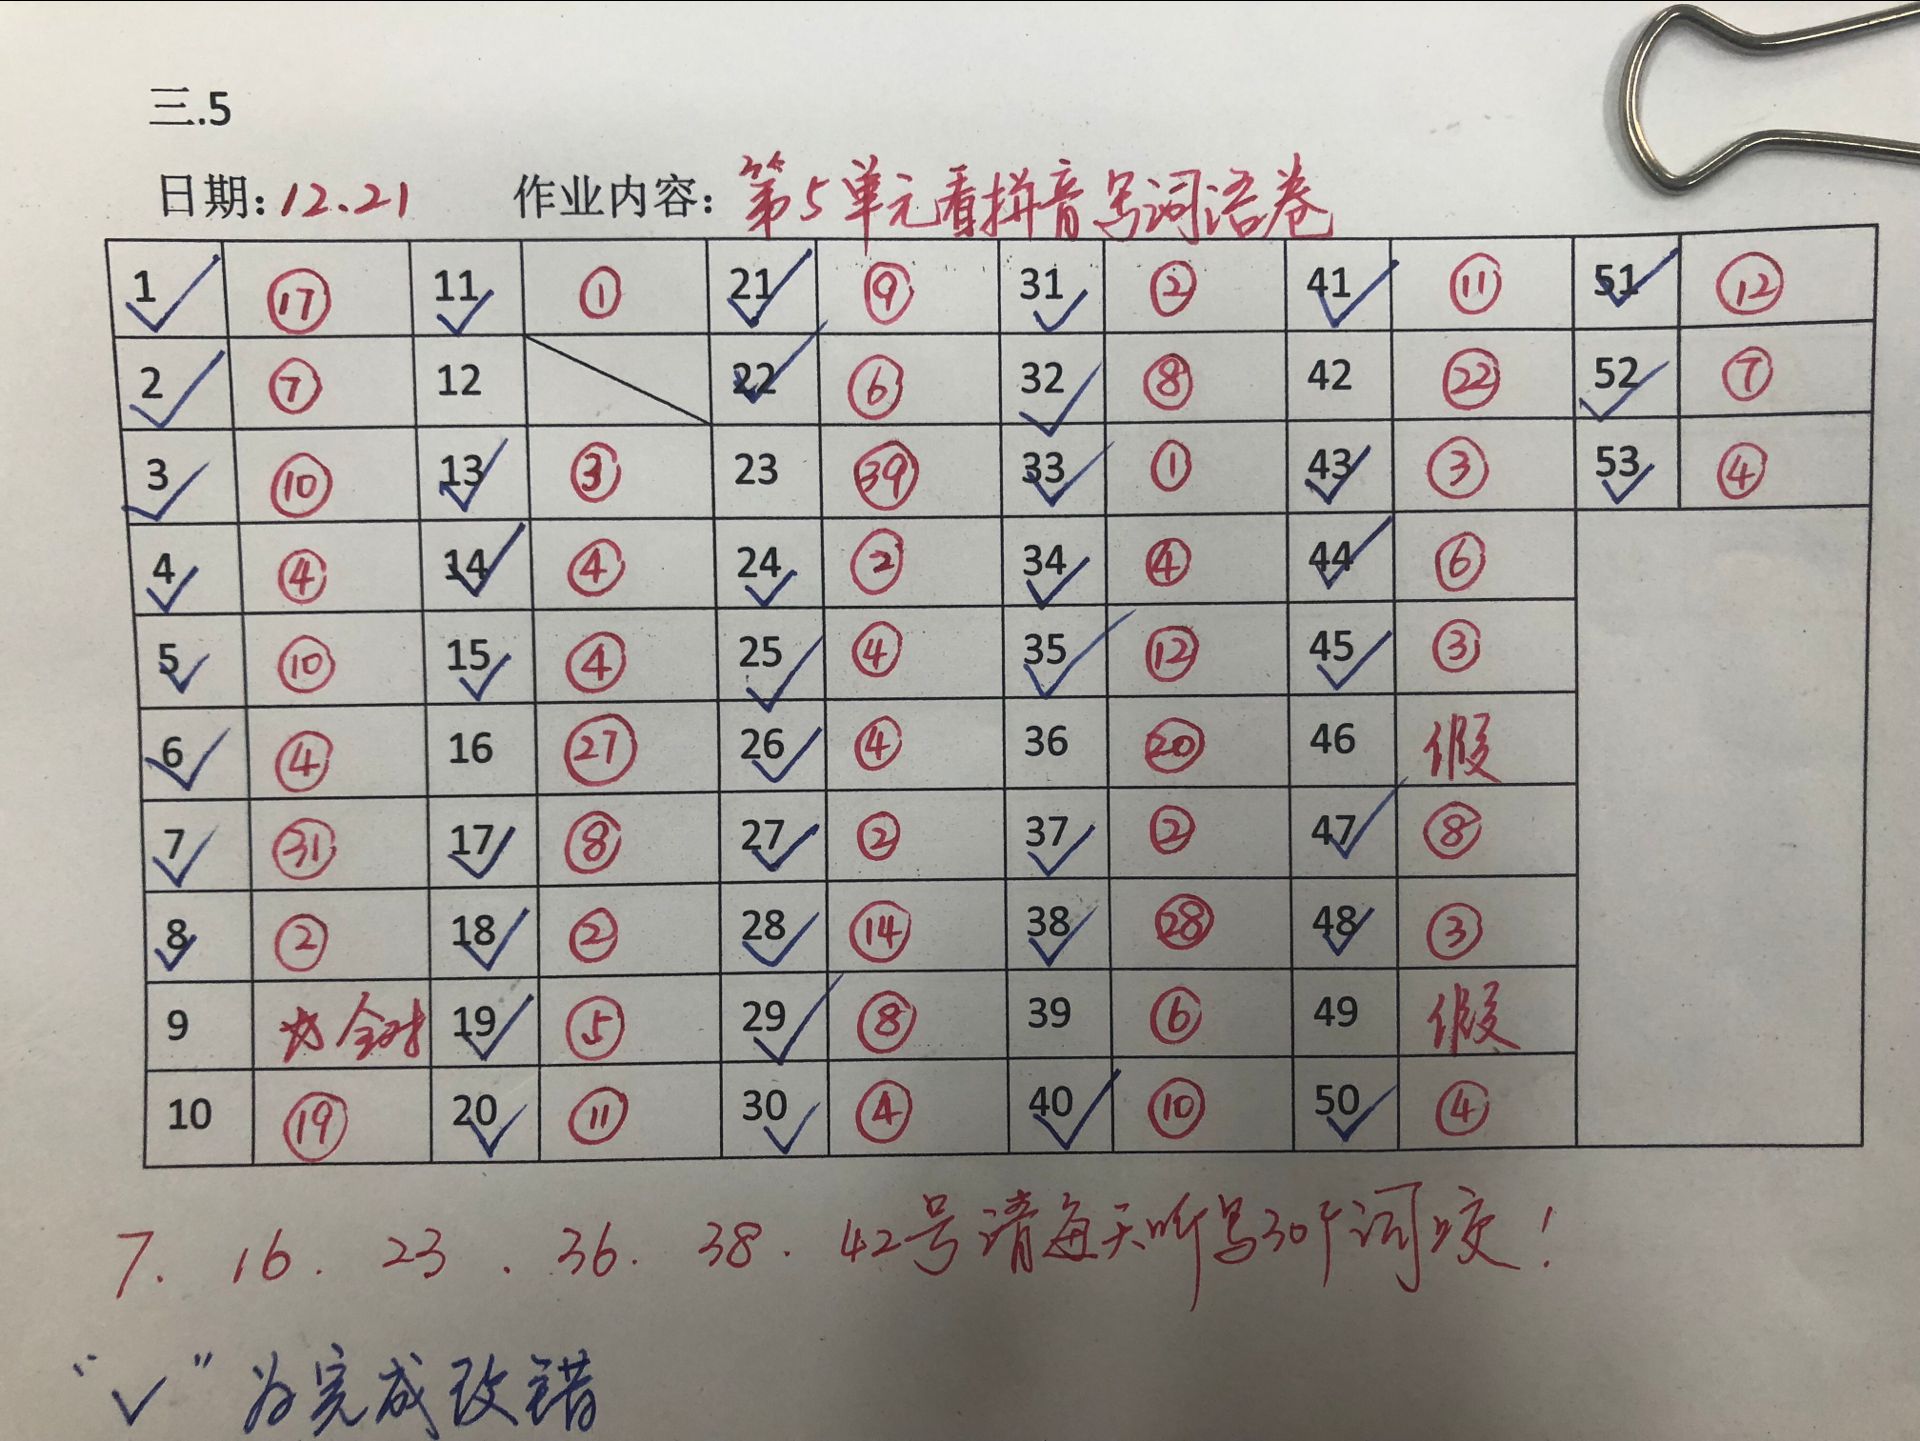 三.5
日期:12.21 作业内容:第5单元看拼音写词语卷
1✓ ⑰ 11✓ ① 21✓ ⑨ 31✓ ② 41✓ ⑪ 51✓ ⑫
2✓ ⑦ 12 22✓ ⑥ 32✓ ⑧ 42 ㉒ 52✓ ⑦
3✓ ⑩ 13✓ ③ 23 ㊴ 33✓ ① 43✓ ③ 53✓ ④
4✓ ④ 14✓ ④ 24✓ ② 34✓ ④ 44✓ ⑥
5✓ ⑩ 15✓ ④ 25✓ ④ 35✓ ⑫ 45✓ ③
6✓ ④ 16 ㉗ 26✓ ④ 36 ⑳ 46 假
7✓ ㉛ 17✓ ⑧ 27✓ ② 37✓ ② 47✓ ⑧
8✓ ② 18✓ ② 28✓ ⑭ 38✓ ㉘ 48✓ ③
9 全对 19✓ ⑤ 29✓ ⑧ 39 ⑥ 49 假
10 ⑲ 20✓ ⑪ 30✓ ④ 40✓ ⑩ 50✓ ④
7. 16. 23. 36. 38. 42号请每天听写30个词交!
“✓”为完成改错